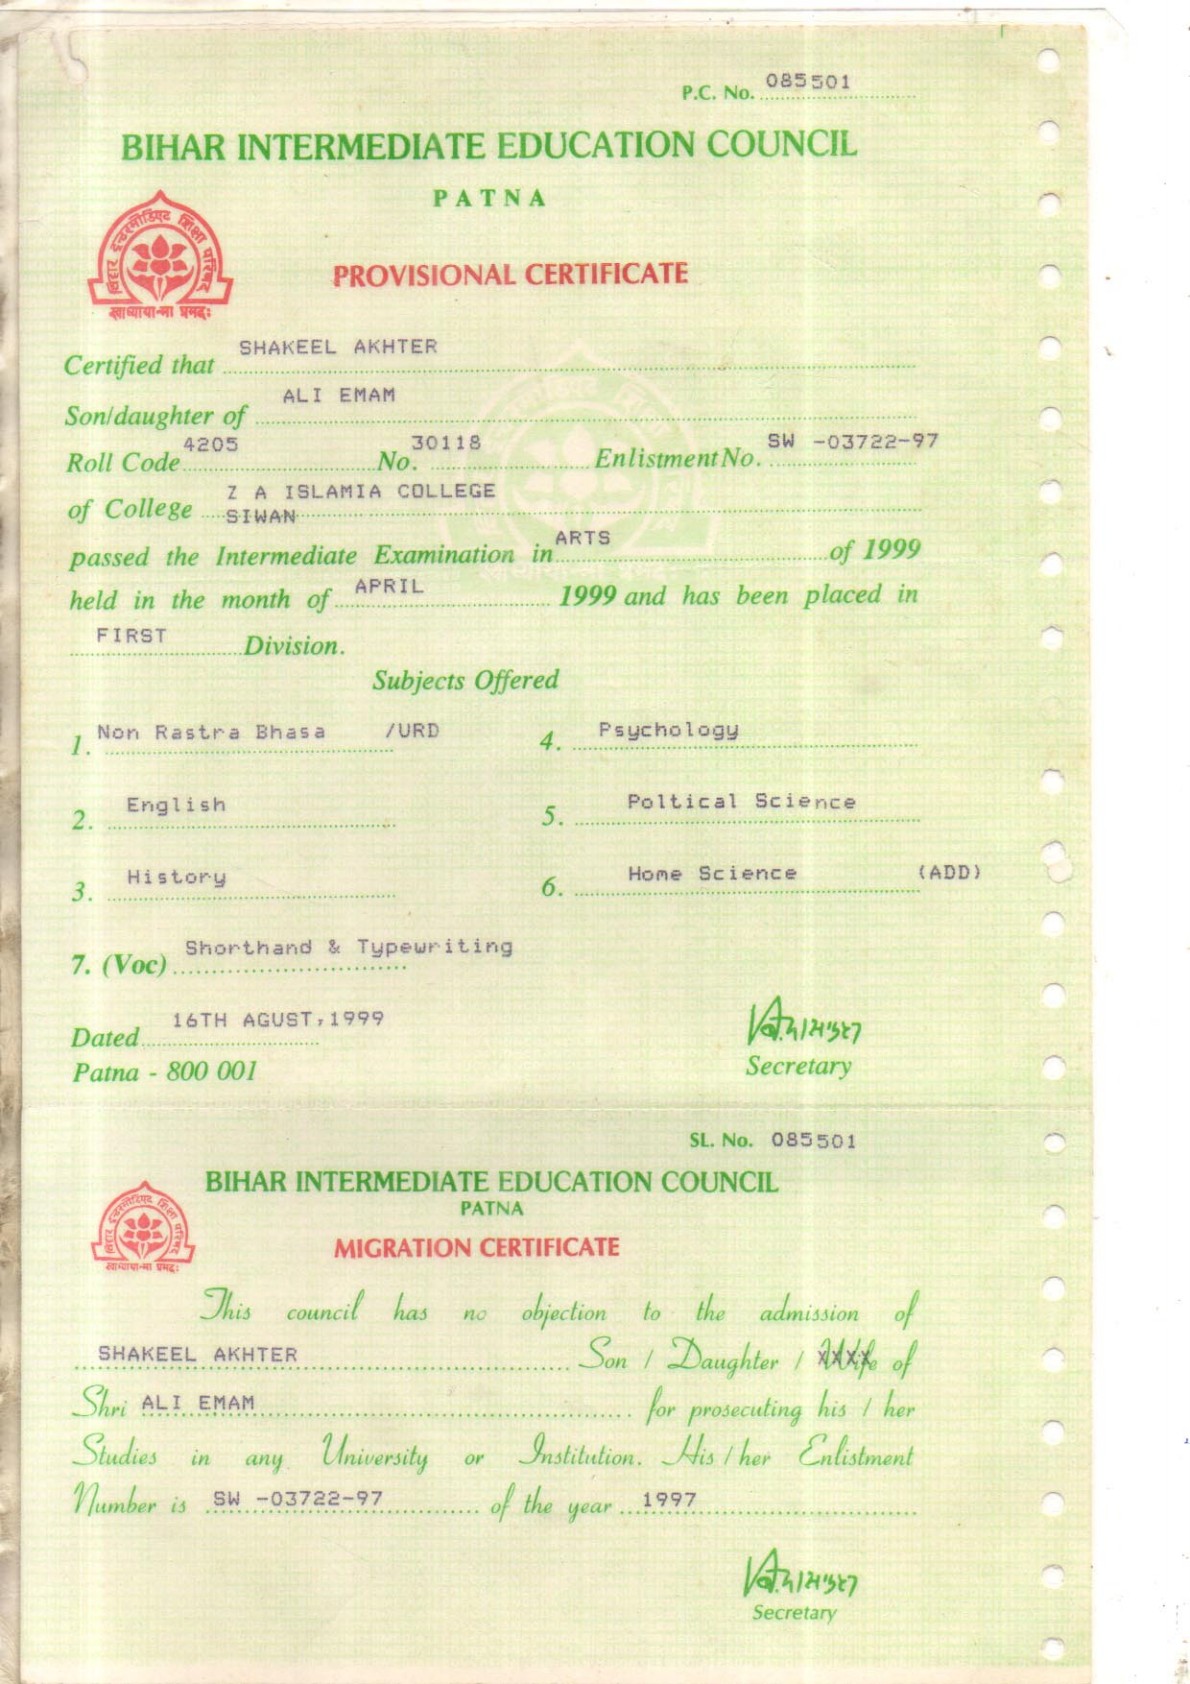 P.C. No. 085501
BIHAR INTERMEDIATE EDUCATION COUNCIL
PATNA
बिहार इन्टरमीडिएट शिक्षा परिषद
PROVISIONAL CERTIFICATE
Certified that SHAKEEL AKHTER
Son/daughter of ALI EMAM
Roll Code 4205 No. 30118 Enlistment No. SW -03722-97
of College Z A ISLAMIA COLLEGE
SIWAN
passed the Intermediate Examination in ARTS of 1999
held in the month of APRIL 1999 and has been placed in
FIRST Division.
Subjects Offered
1. Non Rastra Bhasa /URD 4. Psychology
2. English 5. Poltical Science
3. History 6. Home Science (ADD)
7. (Voc) Shorthand & Typewriting
Dated 16TH AGUST,1999
Patna - 800 001 Secretary
SL. No. 085501
BIHAR INTERMEDIATE EDUCATION COUNCIL
PATNA
बिहार इन्टरमीडिएट शिक्षा परिषद
MIGRATION CERTIFICATE
This council has no objection to the admission of
SHAKEEL AKHTER Son / Daughter / Wife of
Shri ALI EMAM for prosecuting his / her
Studies in any University or Institution. His / her Enlistment
Number is SW -03722-97 of the year 1997
Secretary